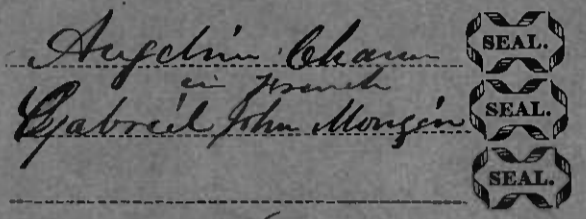 Angelin Chaun SEAL.
in french
Gabreil John Mongin SEAL.
SEAL.